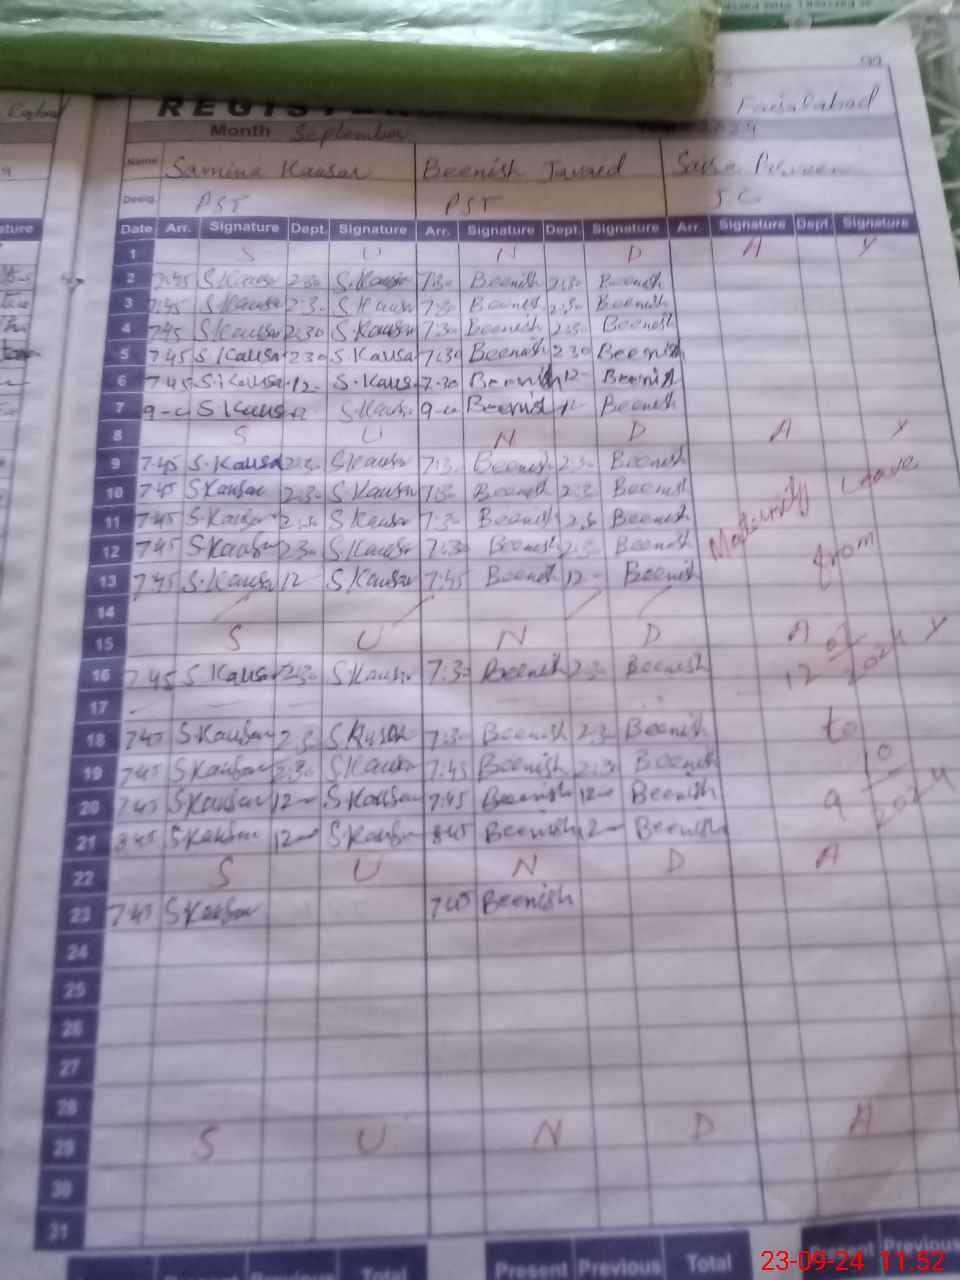 99
REGISTER
Faisalabad
Month September
Name Samina Kausar Beenish Javaid
Desig. PST PST J.C
Date Arr. Signature Dept. Signature Arr. Signature Dept. Signature Arr. Signature Dept Signature
1 S U N D A Y
2 7:45 S.Kausar 2:30 S.Kausar 7:30 Beenish 2:30 Beenish
3 7:45 S.Kausar 2:30 S.Kausar 7:30 Beenish 2:30 Beenish
4 7:45 S.Kausar 2:30 S.Kausar 7:30 Beenish 2:30 Beenish
5 7:45 S.Kausar 2:30 S.Kausar 7:30 Beenish 2:30 Beenish
6 7:45 S.Kausar 12- S.Kausar 7:30 Beenish 12- Beenish
7 9- S.Kausar 12 S.Kausar 9- Beenish 12- Beenish
8 S U N D A Y
9 7:45 S.Kausar 2:30 S.Kausar 7:30 Beenish 2:30 Beenish
10 7:45 S.Kausar 2:30 S.Kausar 7:30 Beenish 2:30 Beenish
11 7:45 S.Kausar 2:30 S.Kausar 7:30 Beenish 2:30 Beenish
12 7:45 S.Kausar 2:30 S.Kausar 7:30 Beenish 2:30 Beenish Maternity Leave
13 7:45 S.Kausar 12 S.Kausar 7:45 Beenish 12- Beenish from
14
15 S U N D A Y
16 7:45 S.Kausar 2:30 S.Kausar 7:30 Beenish 2:30 Beenish 12 2024
17
18 7:45 S.Kausar 2:30 S.Kausar 7:30 Beenish 2:30 Beenish to
19 7:45 S.Kausar 2:30 S.Kausar 7:45 Beenish 2:30 Beenish
20 7:45 S.Kausar 12- S.Kausar 7:45 Beenish 12- Beenish 9 10 2024
21 8:45 S.Kausar 12- S.Kausar 8:45 Beenish 12- Beenish
22 S U N D A
23 7:45 S.Kausar 7:45 Beenish
24
25
26
27
28
29 S U N D A
30
31
Present Previous Total Present Previous
23-09-24 11:52